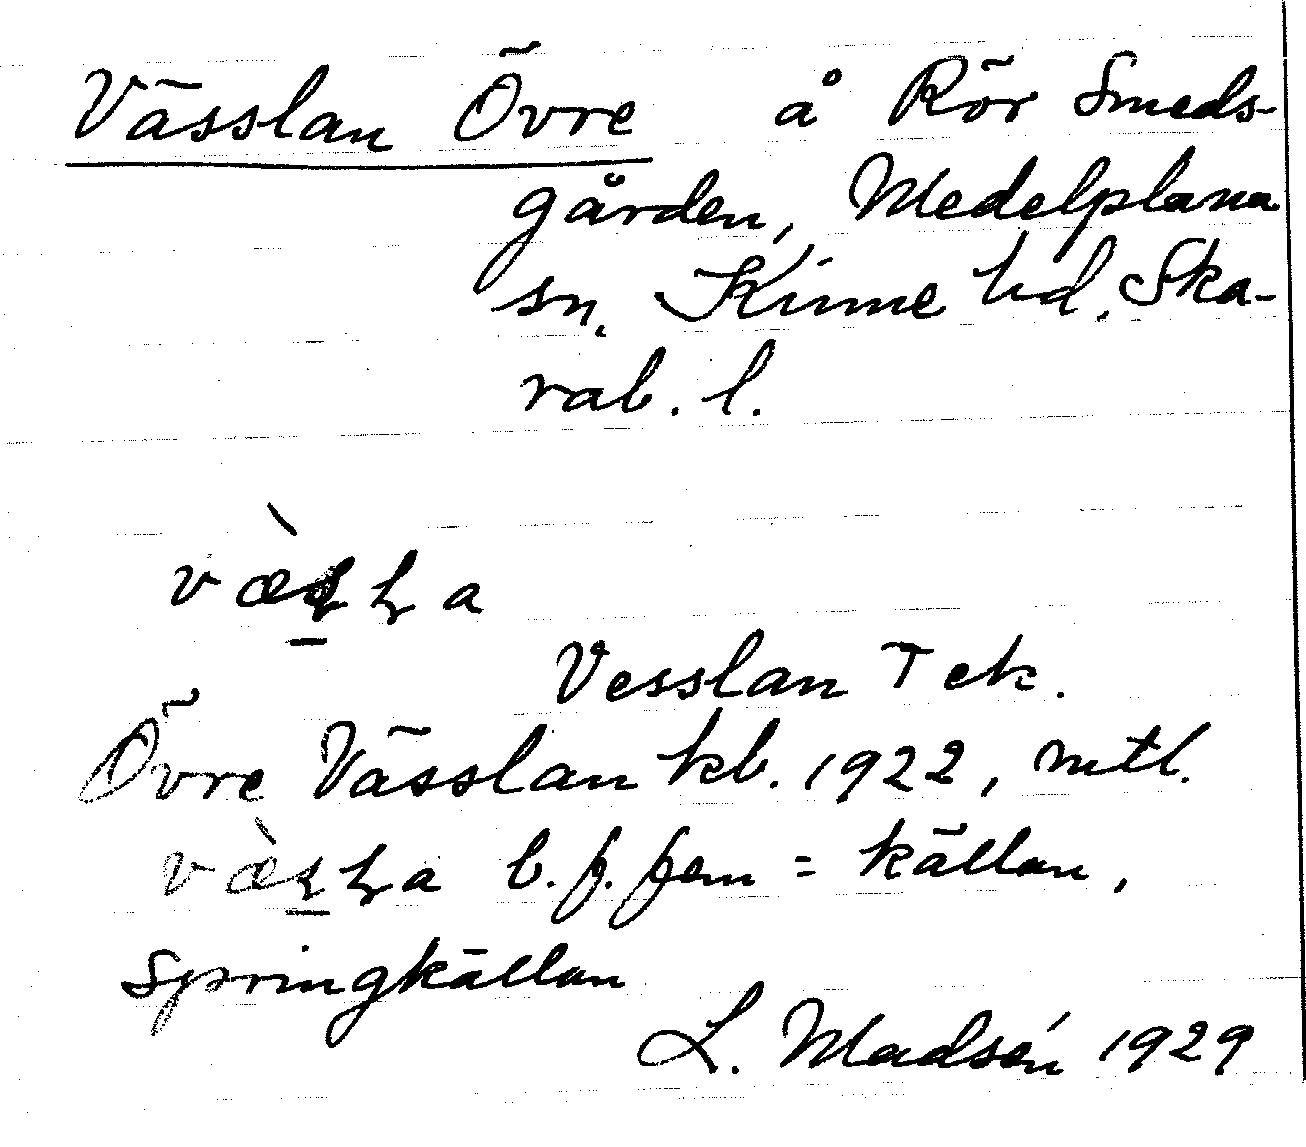 Vässlan Övre å Rör Smeds-
gården, Medelplana
sn. Kinne hd. Ska-
rab. l.
Vesslan Tek.
Övre Vässlan kb. 1922, mtl.
b. f. fem = källan,
springkällan
L. Madsén 1929